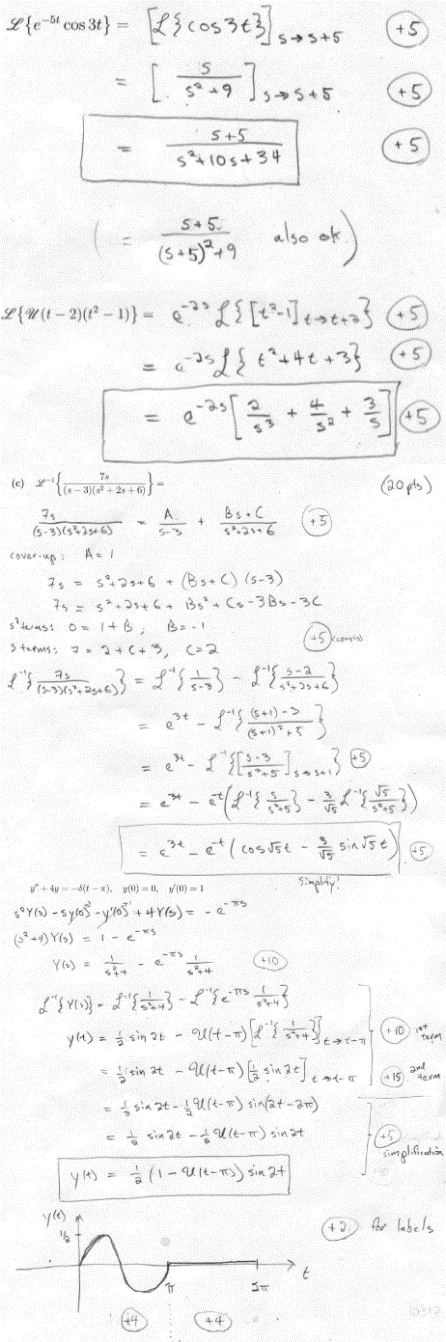 ℒ{e^{-5t} cos 3t} = [ℒ{cos 3t}]_{s→s+5} +5
= [s/(s²+9)]_{s→s+5} +5
= (s+5)/(s²+10s+34) +5
( = (s+5)/((s+5)²+9) also ok )
ℒ{𝒰(t−2)(t²−1)} = e^{-2s} ℒ{[t²-1]_{t→t+2}} +5
= e^{-2s} ℒ{t²+4t+3} +5
= e^{-2s} [2/s³ + 4/s² + 3/s] +5
(c) ℒ^{-1}{7s/((s−3)(s²+2s+6))} = (20 pts)
7s/((s-3)(s²+2s+6)) = A/(s-3) + (Bs+C)/(s²+2s+6) +5
cover-up: A=1
7s = s²+2s+6 + (Bs+C)(s-3)
7s = s²+2s+6 + Bs² + Cs - 3Bs - 3C
s² terms: 0 = 1+B, B=-1
s terms: 7 = 2+C+3, C=2 +5 (consts)
ℒ^{-1}{7s/((s-3)(s²+2s+6))} = ℒ^{-1}{1/(s-3)} - ℒ^{-1}{(s-2)/(s²+2s+6)}
= e^{3t} - ℒ^{-1}{((s+1)-3)/((s+1)²+5)}
= e^{3t} - ℒ^{-1}{[(s-3)/(s²+5)]_{s→s+1}} +5
= e^{3t} - e^{-t}(ℒ^{-1}{s/(s²+5)} - 3/√5 ℒ^{-1}{√5/(s²+5)})
= e^{3t} - e^{-t}(cos√5t - 3/√5 sin√5t) +5
Simplify!
y″ + 4y = −δ(t − π), y(0) = 0, y′(0) = 1
s²Y(s) - sy(0) - y'(0) + 4Y(s) = -e^{-πs}
(s²+4)Y(s) = 1 - e^{-πs}
Y(s) = 1/(s²+4) - e^{-πs} 1/(s²+4) +10
ℒ^{-1}{Y(s)} = ℒ^{-1}{1/(s²+4)} - ℒ^{-1}{e^{-πs} 1/(s²+4)}
y(t) = 1/2 sin 2t - 𝒰(t-π)[ℒ^{-1}{1/(s²+4)}]_{t→t-π} +10 1st term
= 1/2 sin 2t - 𝒰(t-π)[1/2 sin 2t]_{t→t-π} +15 2nd term
= 1/2 sin 2t - 1/2 𝒰(t-π) sin(2t-2π)
= 1/2 sin 2t - 1/2 𝒰(t-π) sin 2t +5 simplification
y(t) = 1/2 (1 - 𝒰(t-π)) sin 2t
y(t) +2 for labels
1/2
t
π 5π
+4 +4